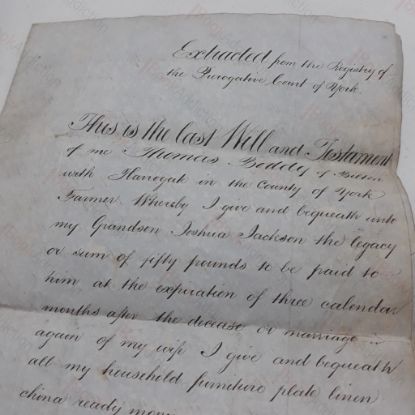 Extracted from the Registry of
the Prerogative Court of York.
This is the last Will and Testament
of me Thomas of Bilton
with Harrogate in the County of York
Farmer Whereby I give and bequeath unto
my Grandson Joshua Jackson the legacy
or sum of fifty pounds to be paid to
him at the expiration of three calendar
months after the decease or marriage
again of my wife I give and bequeath
all my household furniture plate linen
china ready money